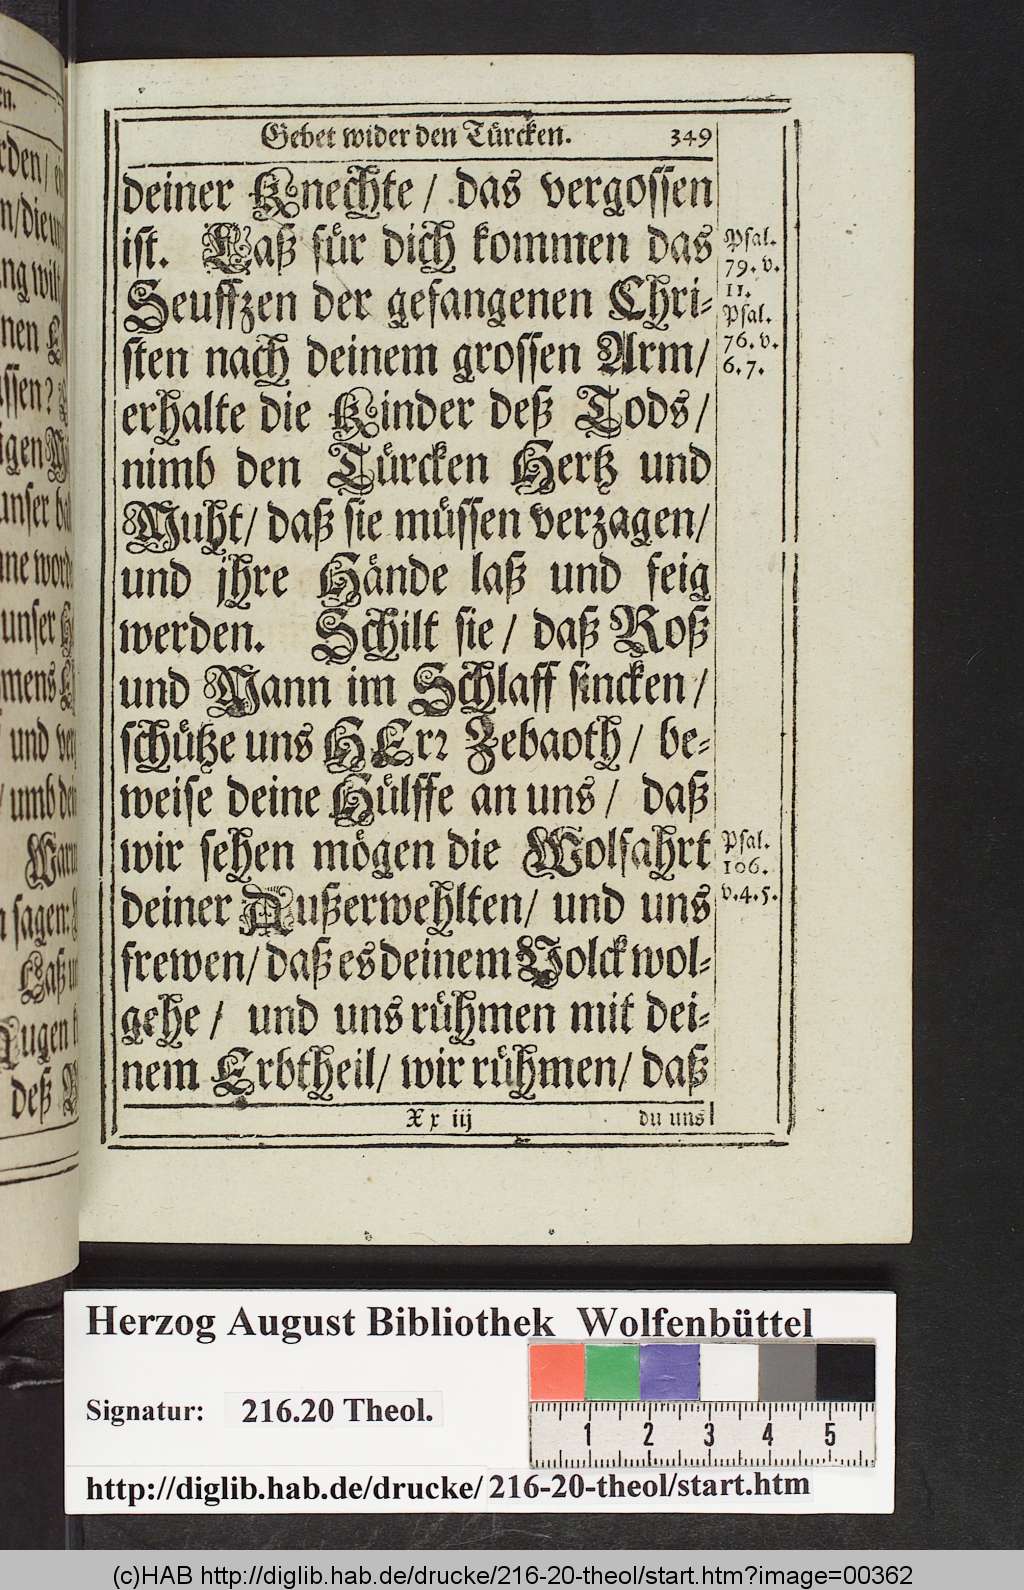 Gebet wider den Türcken. 349
deiner Knechte / das vergossen
ist. Laß für dich kommen das
Seufftzen der gefangenen Chri-
sten nach deinem grossen Arm/
erhalte die Kinder deß Tods/
nimb den Türcken Hertz und
Muht/ daß sie müssen verzagen/
und jhre Hände laß und feig
werden. Schilt sie / daß Roß
und Mann im Schlaff sincken/
schütze uns HErr Zebaoth/ be-
weise deine Hülffe an uns/ daß
wir sehen mögen die Wolfahrt
deiner Außerwehlten/ und uns
frewen/ daß es deinem Volck wol-
gehe / und uns rühmen mit dei-
nem Erbtheil/ wir rühmen/ daß
X x iij du uns
Psal.
79. v.
11.
Psal.
76. v.
6. 7.
Psal.
106.
v. 4. 5.
Herzog August Bibliothek Wolfenbüttel
Signatur: 216.20 Theol.
1 2 3 4 5
http://diglib.hab.de/drucke/216-20-theol/start.htm
(c)HAB http://diglib.hab.de/drucke/216-20-theol/start.htm?image=00362